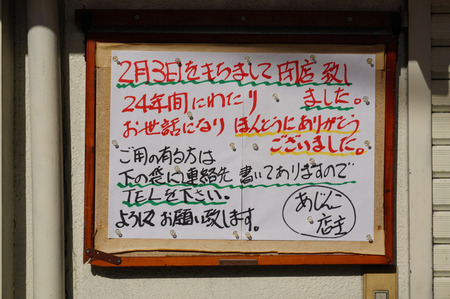 2月3日をもちまして閉店致し
24年間にわたり ました。
お世話になり ほんとうにありがとう
ございました。
ご用の有る方は
下の袋に連絡先 書いてありますので
TELを下さい。
よろしく お願い致します。
あじんこ
店主